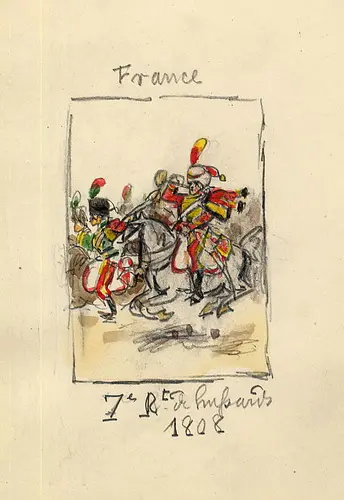 France
7e Rt de hussards
1808